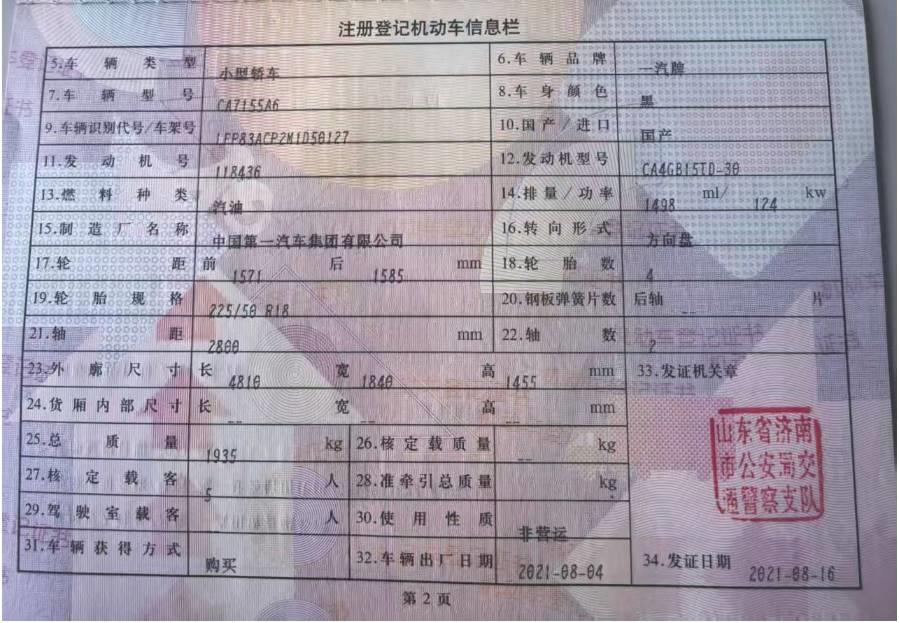 注册登记机动车信息栏
5.车辆类型 小型轿车 6.车辆品牌 一汽牌
7.车辆型号 CA7155A6 8.车身颜色 黑
9.车辆识别代号/车架号 LFP83ACP2M1D50127 10.国产/进口 国产
11.发动机号 118436 12.发动机型号 CA4GB15TD-30
13.燃料种类 汽油 14.排量/功率 1498 ml/ 124 kw
15.制造厂名称 中国第一汽车集团有限公司 16.转向形式 方向盘
17.轮距 前 1571 后 1585 mm 18.轮胎数 4
19.轮胎规格 225/50 R18 20.钢板弹簧片数 后轴 片
21.轴距 2800 mm 22.轴数 2
23.外廓尺寸 长 4810 宽 1840 高 1455 mm 33.发证机关章
24.货厢内部尺寸 长 -- 宽 -- 高 -- mm
25.总质量 1935 kg 26.核定载质量 -- kg
27.核定载客 5 人 28.准牵引总质量 -- kg
29.驾驶室载客 -- 人 30.使用性质 非营运
31.车辆获得方式 购买 32.车辆出厂日期 2021-08-04 34.发证日期 2021-08-16
山东省济南
市公安局交
通警察支队
第2页